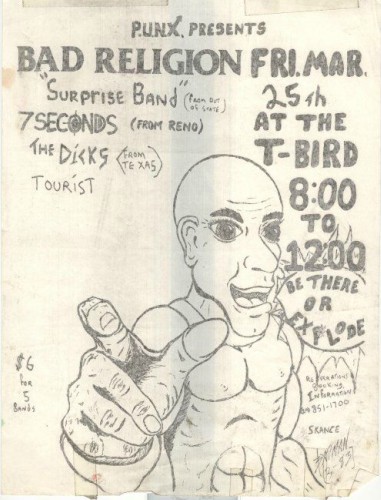 P.U.N.X. PRESENTS
BAD RELIGION FRI. MAR.
"SURPRISE BAND" (FROM OUT OF STATE)
7 SECONDS (FROM RENO)
THE DICKS (FROM TEXAS)
TOURIST
25th
AT THE
T-BIRD
8:00
TO
1200
BE THERE
OR
EXPLODE
$6
for
5
BANDS
INFORMATION
851-1700